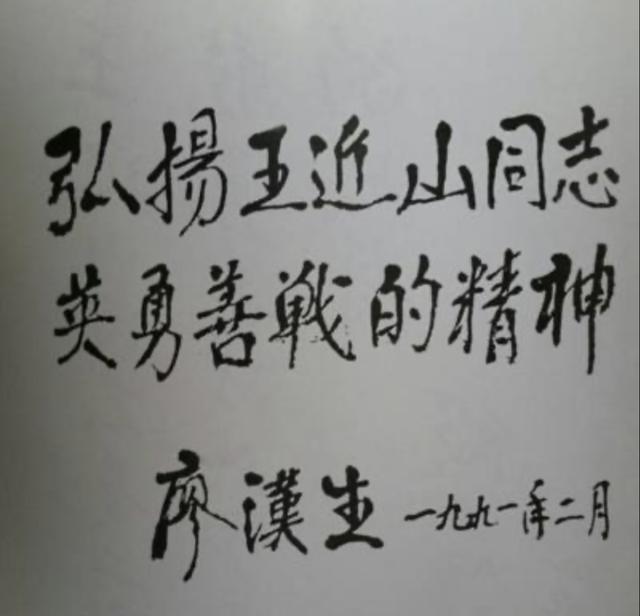 弘揚王近山同志
英勇善戦的精神
廖漢生 一九九一年二月